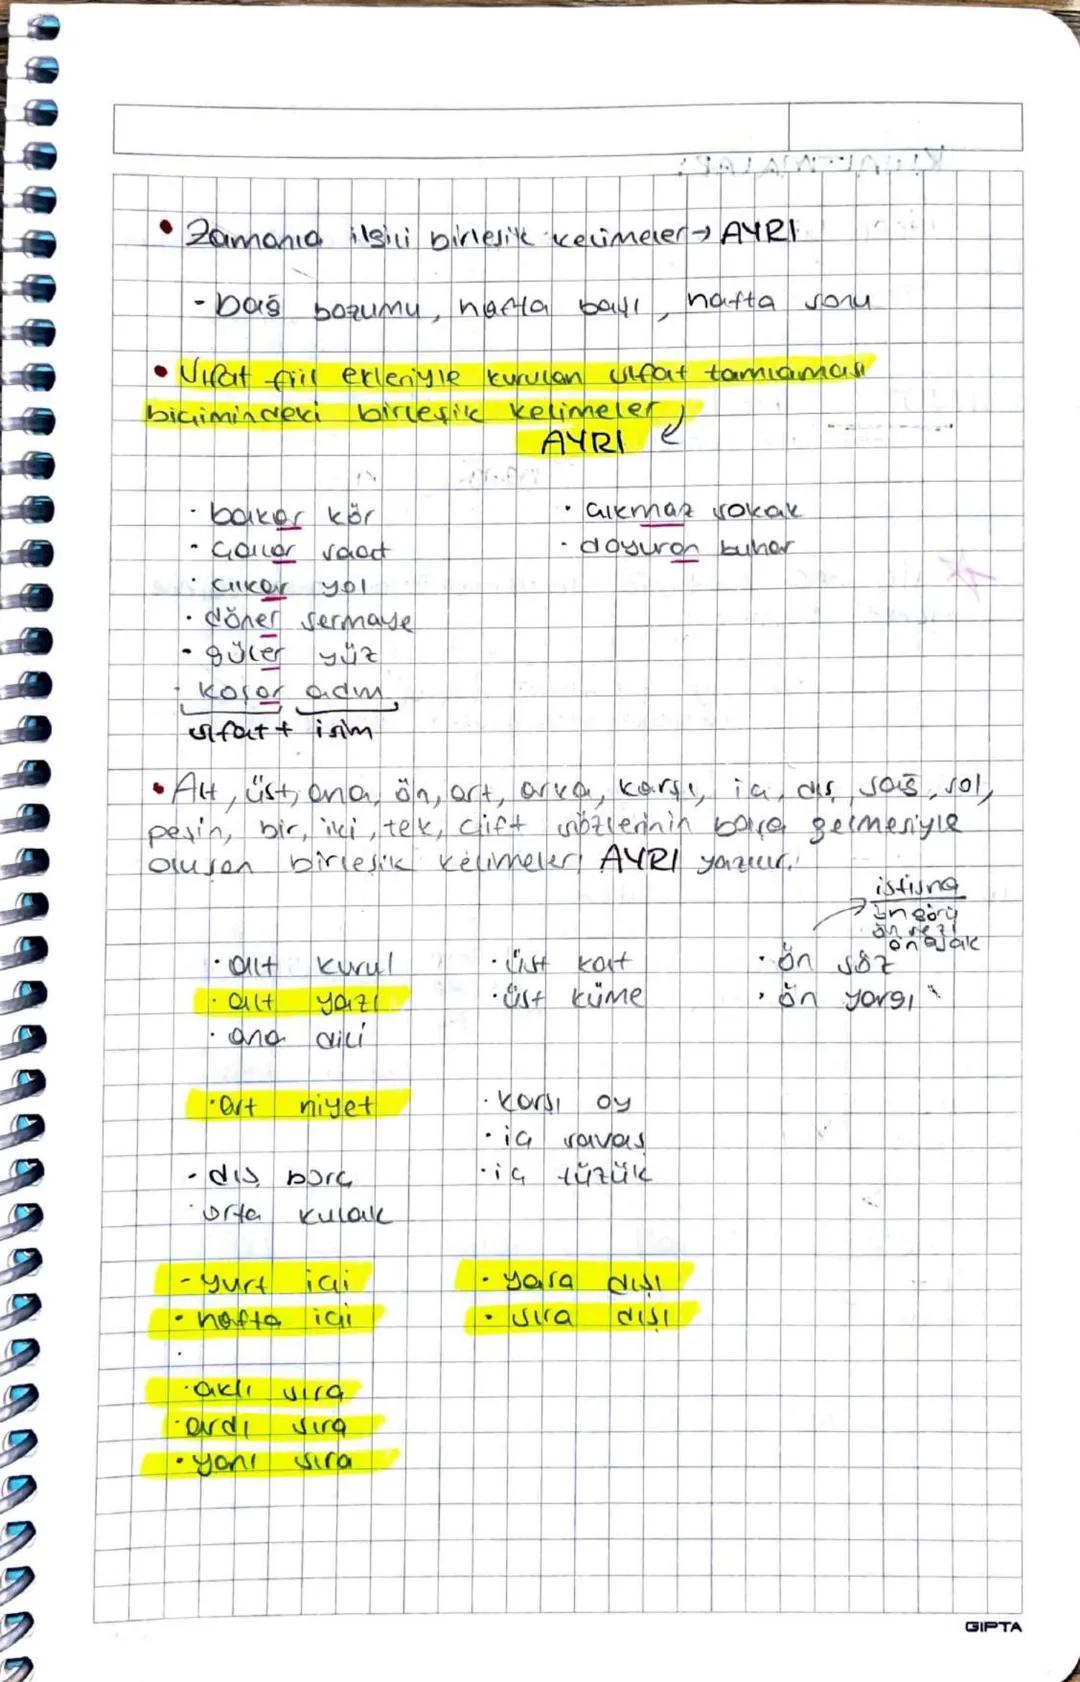 • Zamanla ilgili birleşik kelimeler → AYRI
- bağ bozumu, hafta başı, hafta sonu
• Sıfat fiil ekleriyle kurulan sıfat tamlaması
biçimindeki birleşik kelimeler
AYRI
· bakar kör
· çıkmaz sokak
· çalar saat
· doyuran buhar
· çıkar yol
· döner sermaye
· güler yüz
· koşar adım
sıfat + isim
• Alt, üst, ana, ön, art, arka, karşı, iç, dış, sağ, sol,
peşin, bir, iki, tek, çift sözlerinin başa gelmesiyle
oluşan birleşik kelimeler AYRI yazılır.
istisna
öngörü
önezi
önayak
· alt kurul
· üst kat
· ön söz
· alt yazı
· üst küme
· ön yargı
· ana dili
· art niyet
· karşı oy
· iç savaş
- dış borç
· iç tüzük
· orta kulak
- yurt içi
· yasa dışı
· hafta içi
· sıra dışı
· aklı sıra
· ardı sıra
· yanı sıra
GIPTA